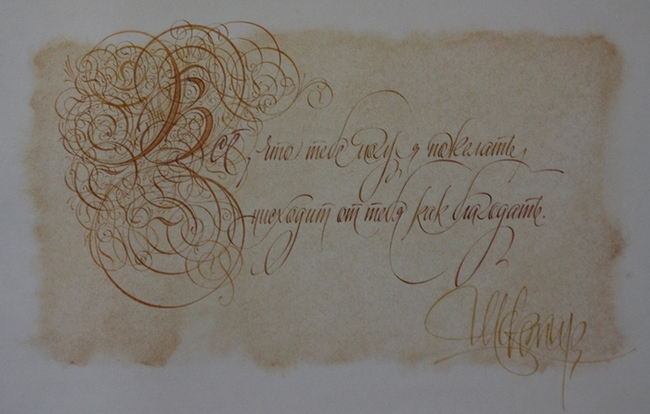 Всё, что тебе могу я пожелать,
Нисходит от тебя как благодать.
Шекспир